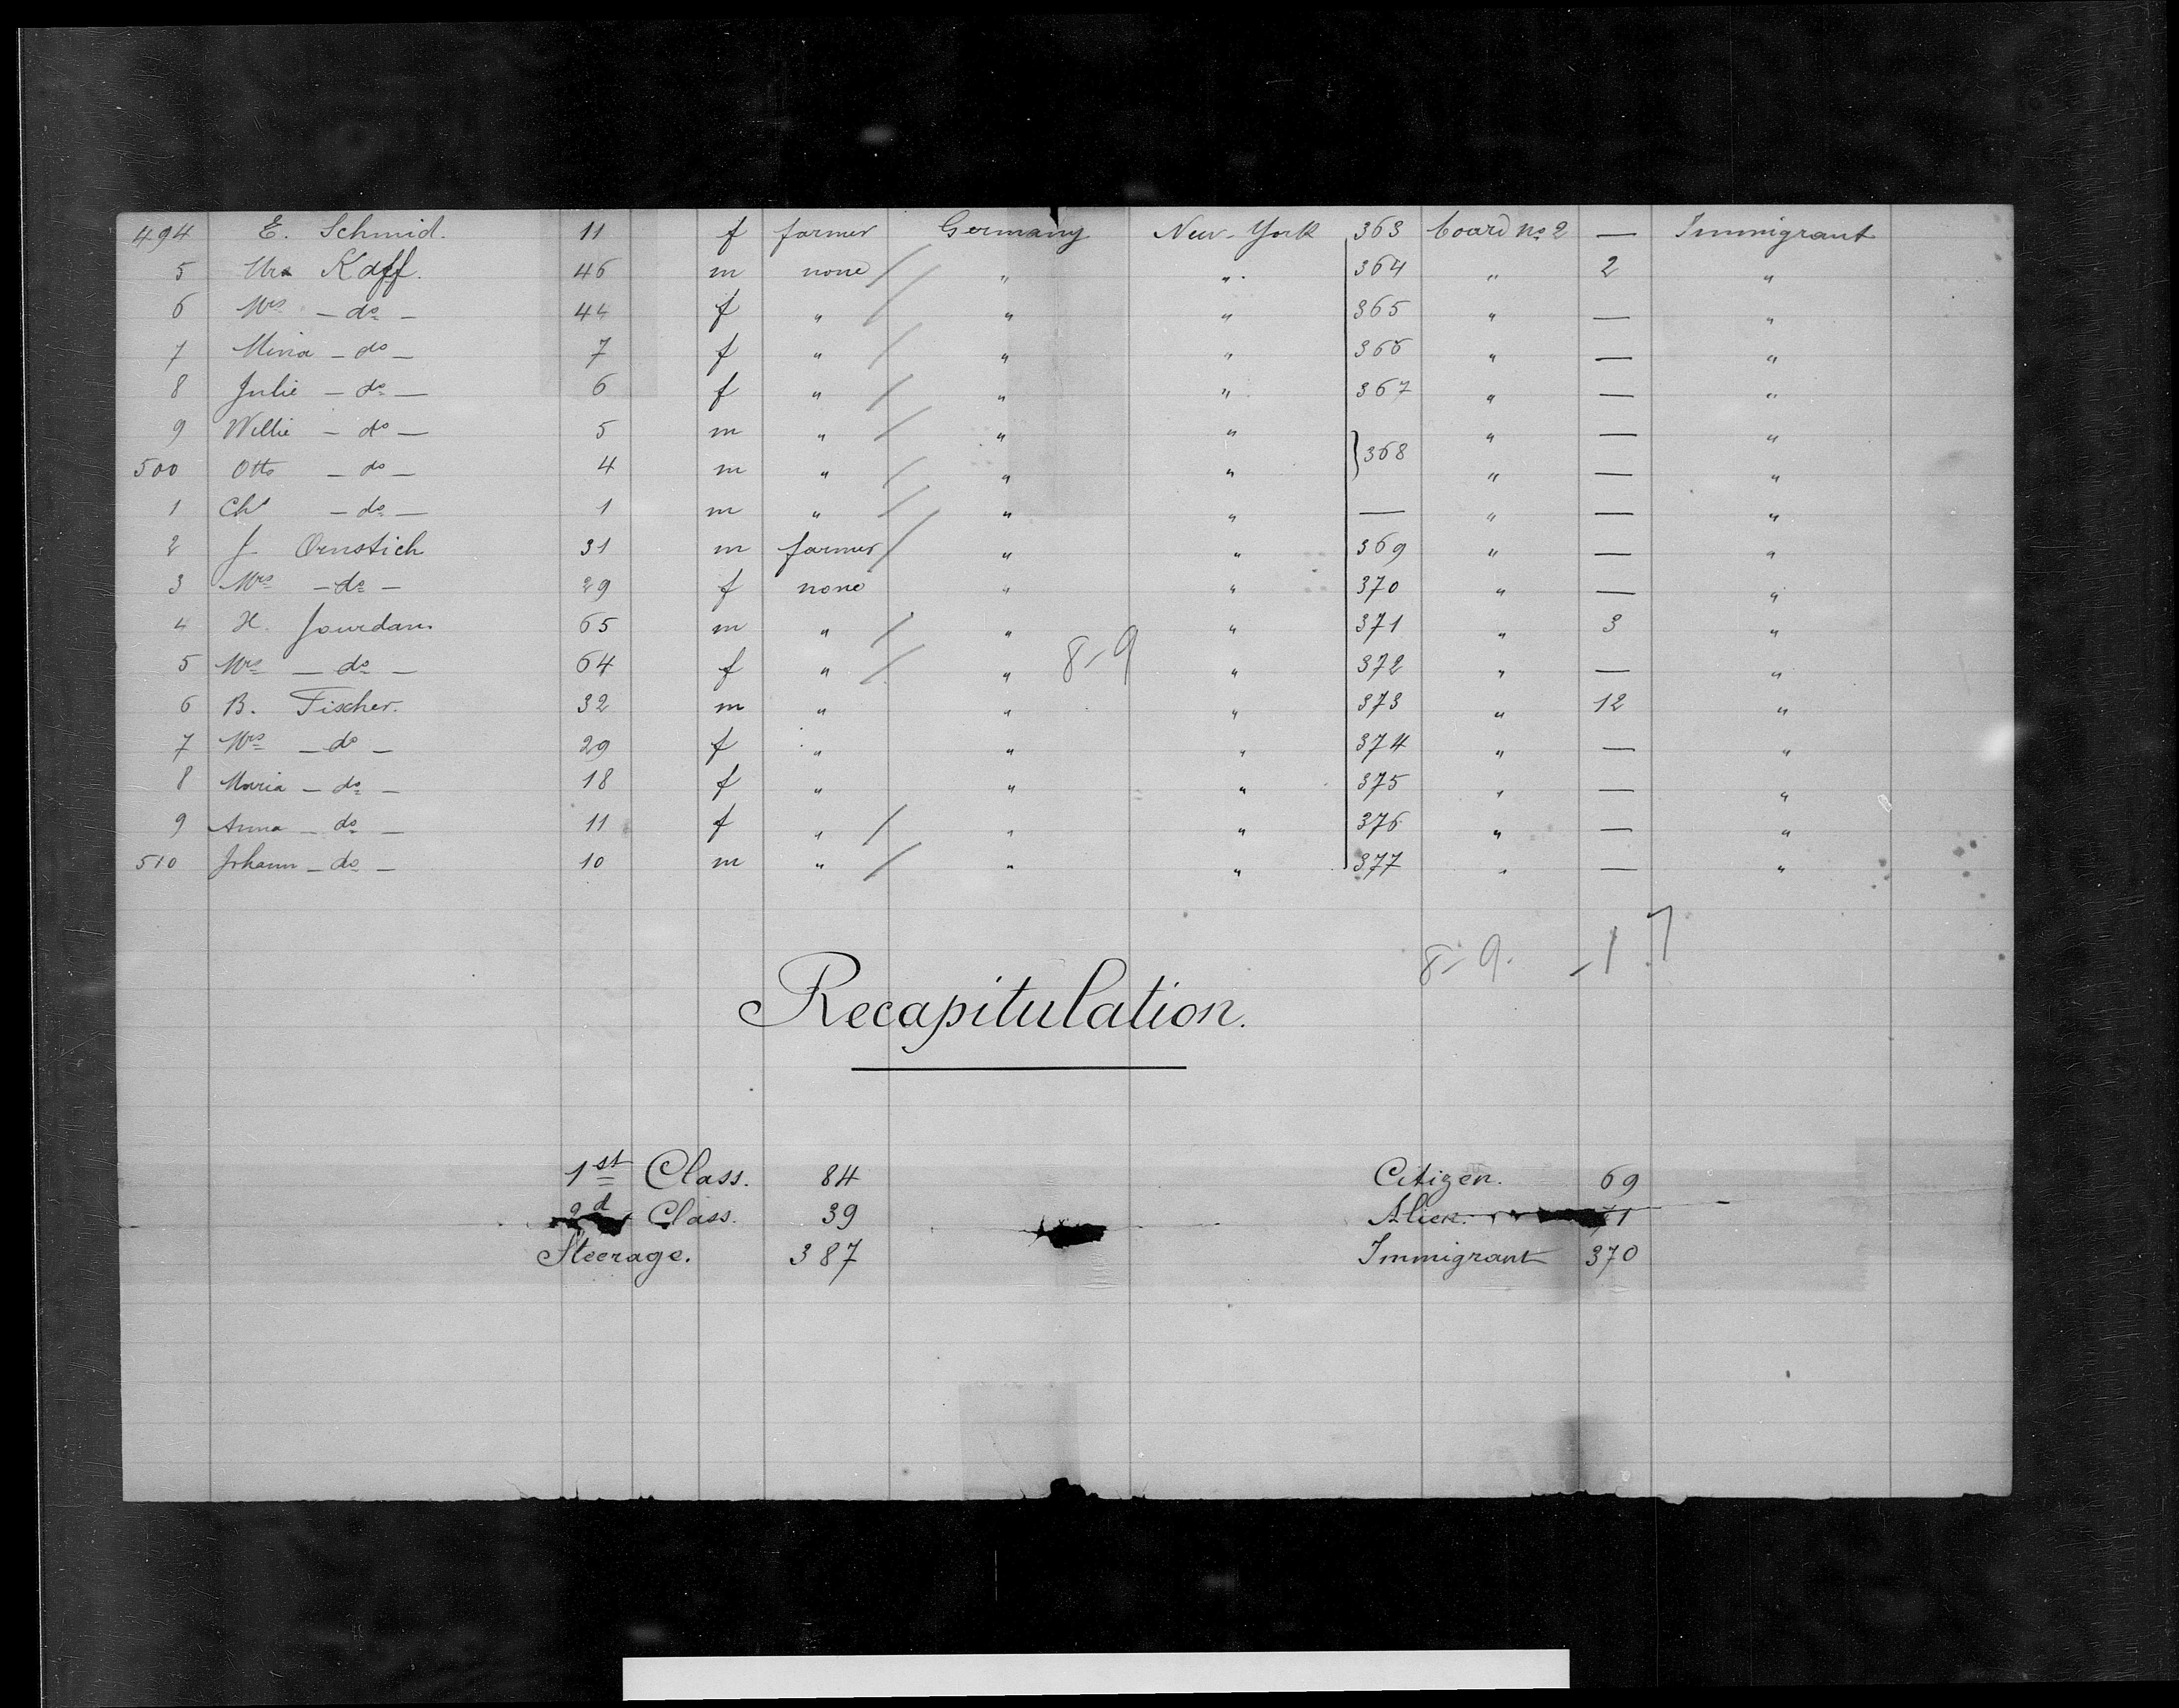 494 E. Schmid. 11 f farmer Germany New-York 363 board No 2 — Immigrant
5 Kaff. 46 m none " " 364 " 2 "
6 Mrs — do — 44 f " " " 365 " — "
7 Mina — do — 7 f " " " 366 " — "
8 Julie — do — 6 f " " " 367 " — "
9 Willie — do — 5 m " " " } 368 " — "
500 Otto — do — 4 m " " " " — "
1 Chs — do — 1 m " " " — " — "
2 J Ornstich 31 m farmer " " 369 " — "
3 Mrs — do — 29 f none " " 370 " — "
4 H. Jourdan. 65 m " " " 371 " 3 "
5 Mrs — do — 64 f " " 8-9 " 372 " — "
6 B. Fischer. 32 m " " " 373 " 12 "
7 Mrs — do — 29 f " " " 374 " — "
8 Maria — do — 18 f " " " 375 " — "
9 Anna — do — 11 f " " " 376 " — "
510 Johann — do — 10 m " " " 377 " — "
8-9. -17
Recapitulation.
1st Class. 84 Citizen. 69
2d Class. 39 Alien. 71
Steerage. 387 Immigrant 370